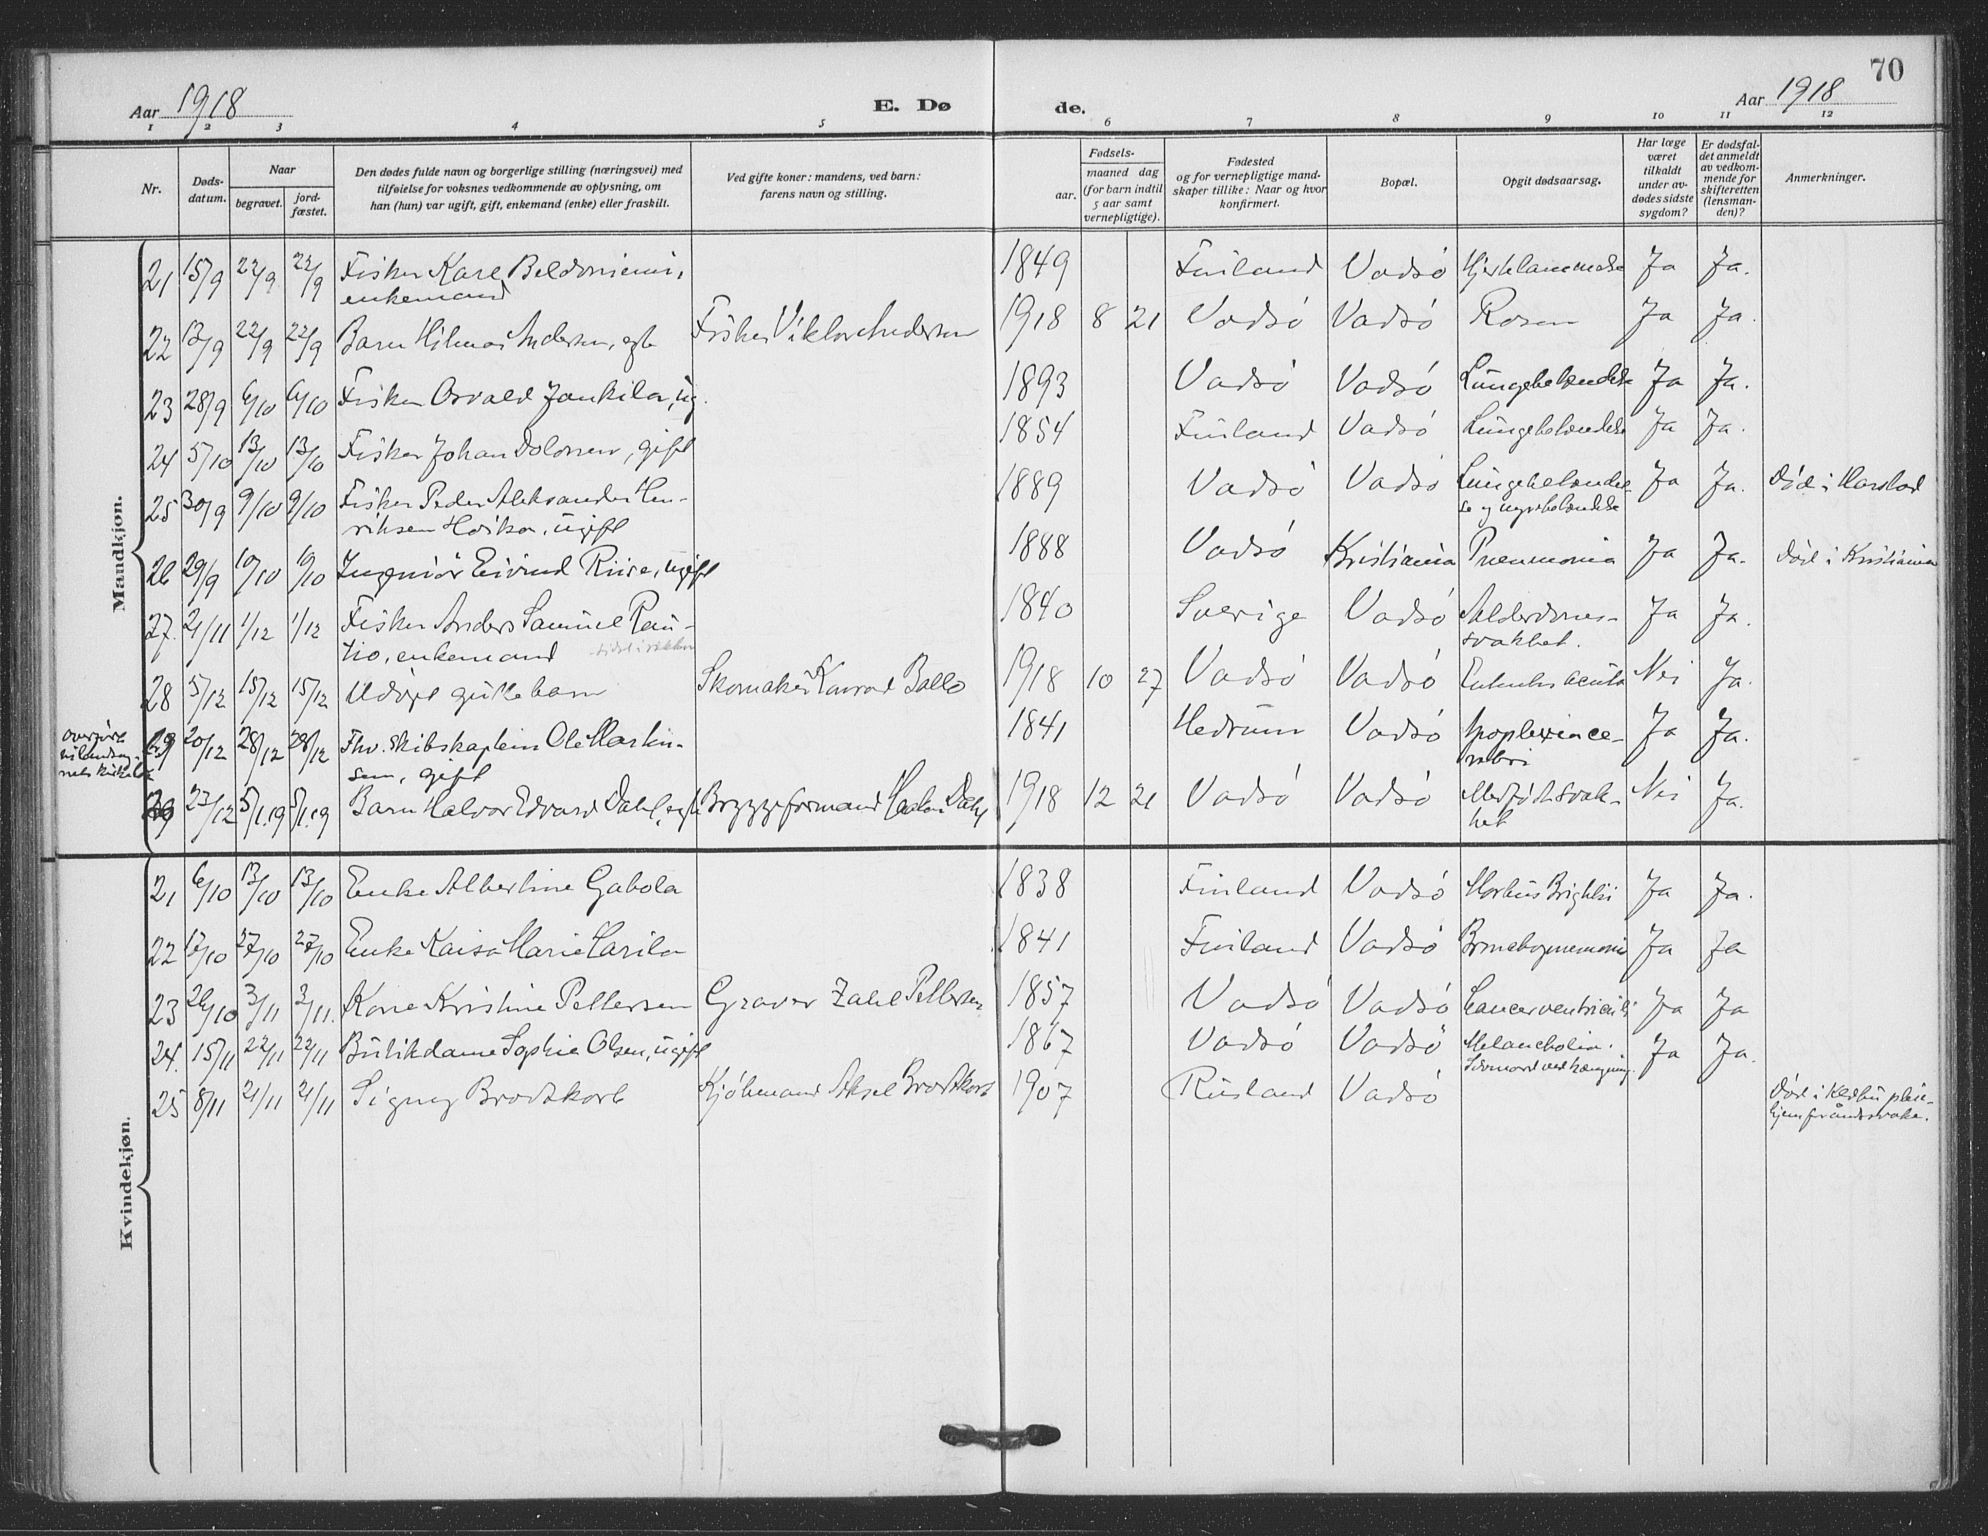 70
Aar 1918
E. Dø
de.
Aar 1918
1 2 3 4 5 6 7 8 9 10 11 12
Nr.
Døds-
datum.
Naar
begravet.
jord-
fæstet.
Den dødes fulde navn og borgerlige stilling (næringsvei) med
tilføielse for voksnes vedkommende av oplysning, om
han (hun) var ugift, gift, enkemand (enke) eller fraskilt.
Ved gifte koner: mandens, ved barn:
farens navn og stilling.
Fødsels-
aar.
maaned dag
(for barn indtil
5 aar samt
vernepligtige).
Fødested
og for vernepligtige mand-
skaper tillike: Naar og hvor
konfirmert.
Bopæl.
Opgit dødsaarsag.
Har læge
været
tilkaldt
under av-
dødes sidste
sygdom?
Er dødsfal-
det anmeldt
av vedkom-
mende for
skifteretten
(lensman-
den)?
Anmerkninger.
Mandkjøn.
21 15/9 22/9 22/9 Fisker Karl 1849 Finland Vadsö Ja Ja.
enkemand
22 13/9 22/9 22/9 Barn Hilmar Andersen, egte Fisker Viktor Andersen 1918 8 21 Vadsö Vadsö Rosen Ja Ja.
23 28/9 6/10 6/10 Fisker Osvald Jankila, ug. 1893 Vadsö Vadsö Lungebetændelse Ja Ja.
24 5/10 13/10 13/10 Fisker Johan Dolonen, gift 1854 Finland Vadsö Lungebetændelse Ja Ja.
25 30/9 9/10 9/10 Fisker Peder Aleksander Hen- 1889 Vadsö Vadsö Lungebetændel- Ja Ja. Död i Harstad
riksen Hoika, ugift se og nyrebetændelse
26 29/9 10/10 10/10 Ingeniör Eivind Riise, ugift 1888 Vadsö Kristiania Pneumonia Ja Ja. Död i Kristiania
27. 21/11 1/12 1/12 Fisker Anders Samuel Rau- 1840 Sverige Vadsö Alderdoms- Ja Ja.
tio, enkemand svakhet.
28 5/12 15/12 15/12 Udöpt guttebarn Skomaker Konrad Ballo 1918 10 27 Vadsö Vadsö Enteritis acuta Nei Ja.
overført
29 20/12 28/12 28/12 Fhv. skibskaptein Ole Martin- 1841 Hedrum Vadsö Apoplexia ce- Ja Ja.
sen, gift rebri
29 23/12 5/1.19 5/1.19 Barn Halvor Edvard Dahl, egte Bryggeformand Dahl 1918 12 21 Vadsö Vadsö Medfödt svak- Nei Ja.
het
Kvindekjøn.
21 6/10 13/10 13/10 Enke Albertine Gabola 1838 Finland Vadsö Morbus Brightii Ja Ja.
22 17/10 27/10 27/10 Enke Kaisa Marie Harila 1841 Finland Vadsö Bronchopneumoni Ja Ja
23 26/10 3/11 3/11. Kone Kristine Pettersen Graver Zakel Pettersen 1857 Vadsö Vadsö Cancer ventriculi Ja Ja
24. 15/11 22/11 22/11 Butikdame Sophie Olsen, ugift 1867 Vadsö Vadsö Melancholia. Ja Ja.
Selvmord ved hængning.
25 8/11 21/11 21/11 Signy Brodtkorb Kjöbmand Aksel Brodtkorb 1907 Rusland Vadsö Död i Klæbu pleie-
hjem for åndssvake.